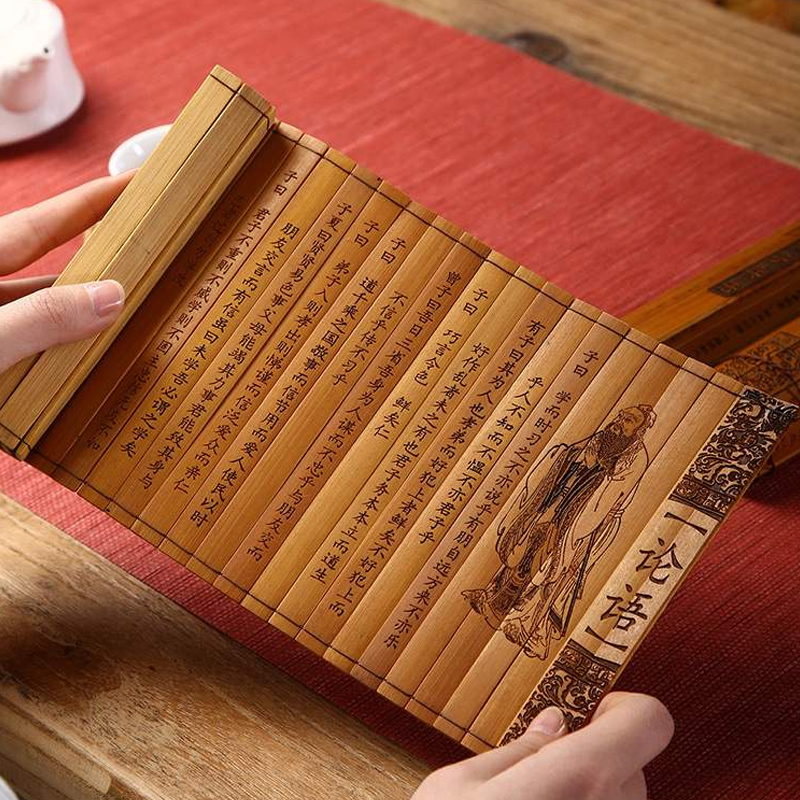 【论语】
子曰 学而时习之不亦说乎有朋自远方来不亦乐
乎人不知而不愠不亦君子乎
有子曰其为人也孝弟而好犯上者鲜矣不好犯上而
好作乱者未之有也君子务本本立而道生
子曰 巧言令色 鲜矣仁
曾子曰吾日三省吾身为人谋而不忠乎与朋友交而
不信乎传不习乎
子曰 道千乘之国敬事而信节用而爱人使民以时
子曰 弟子入则孝出则悌谨而信泛爱众而亲仁
子夏曰贤贤易色事父母能竭其力事君能致其身与
朋友交言而有信虽曰未学吾必谓之学矣
子曰 君子不重则不威学则不固主忠信无友不如